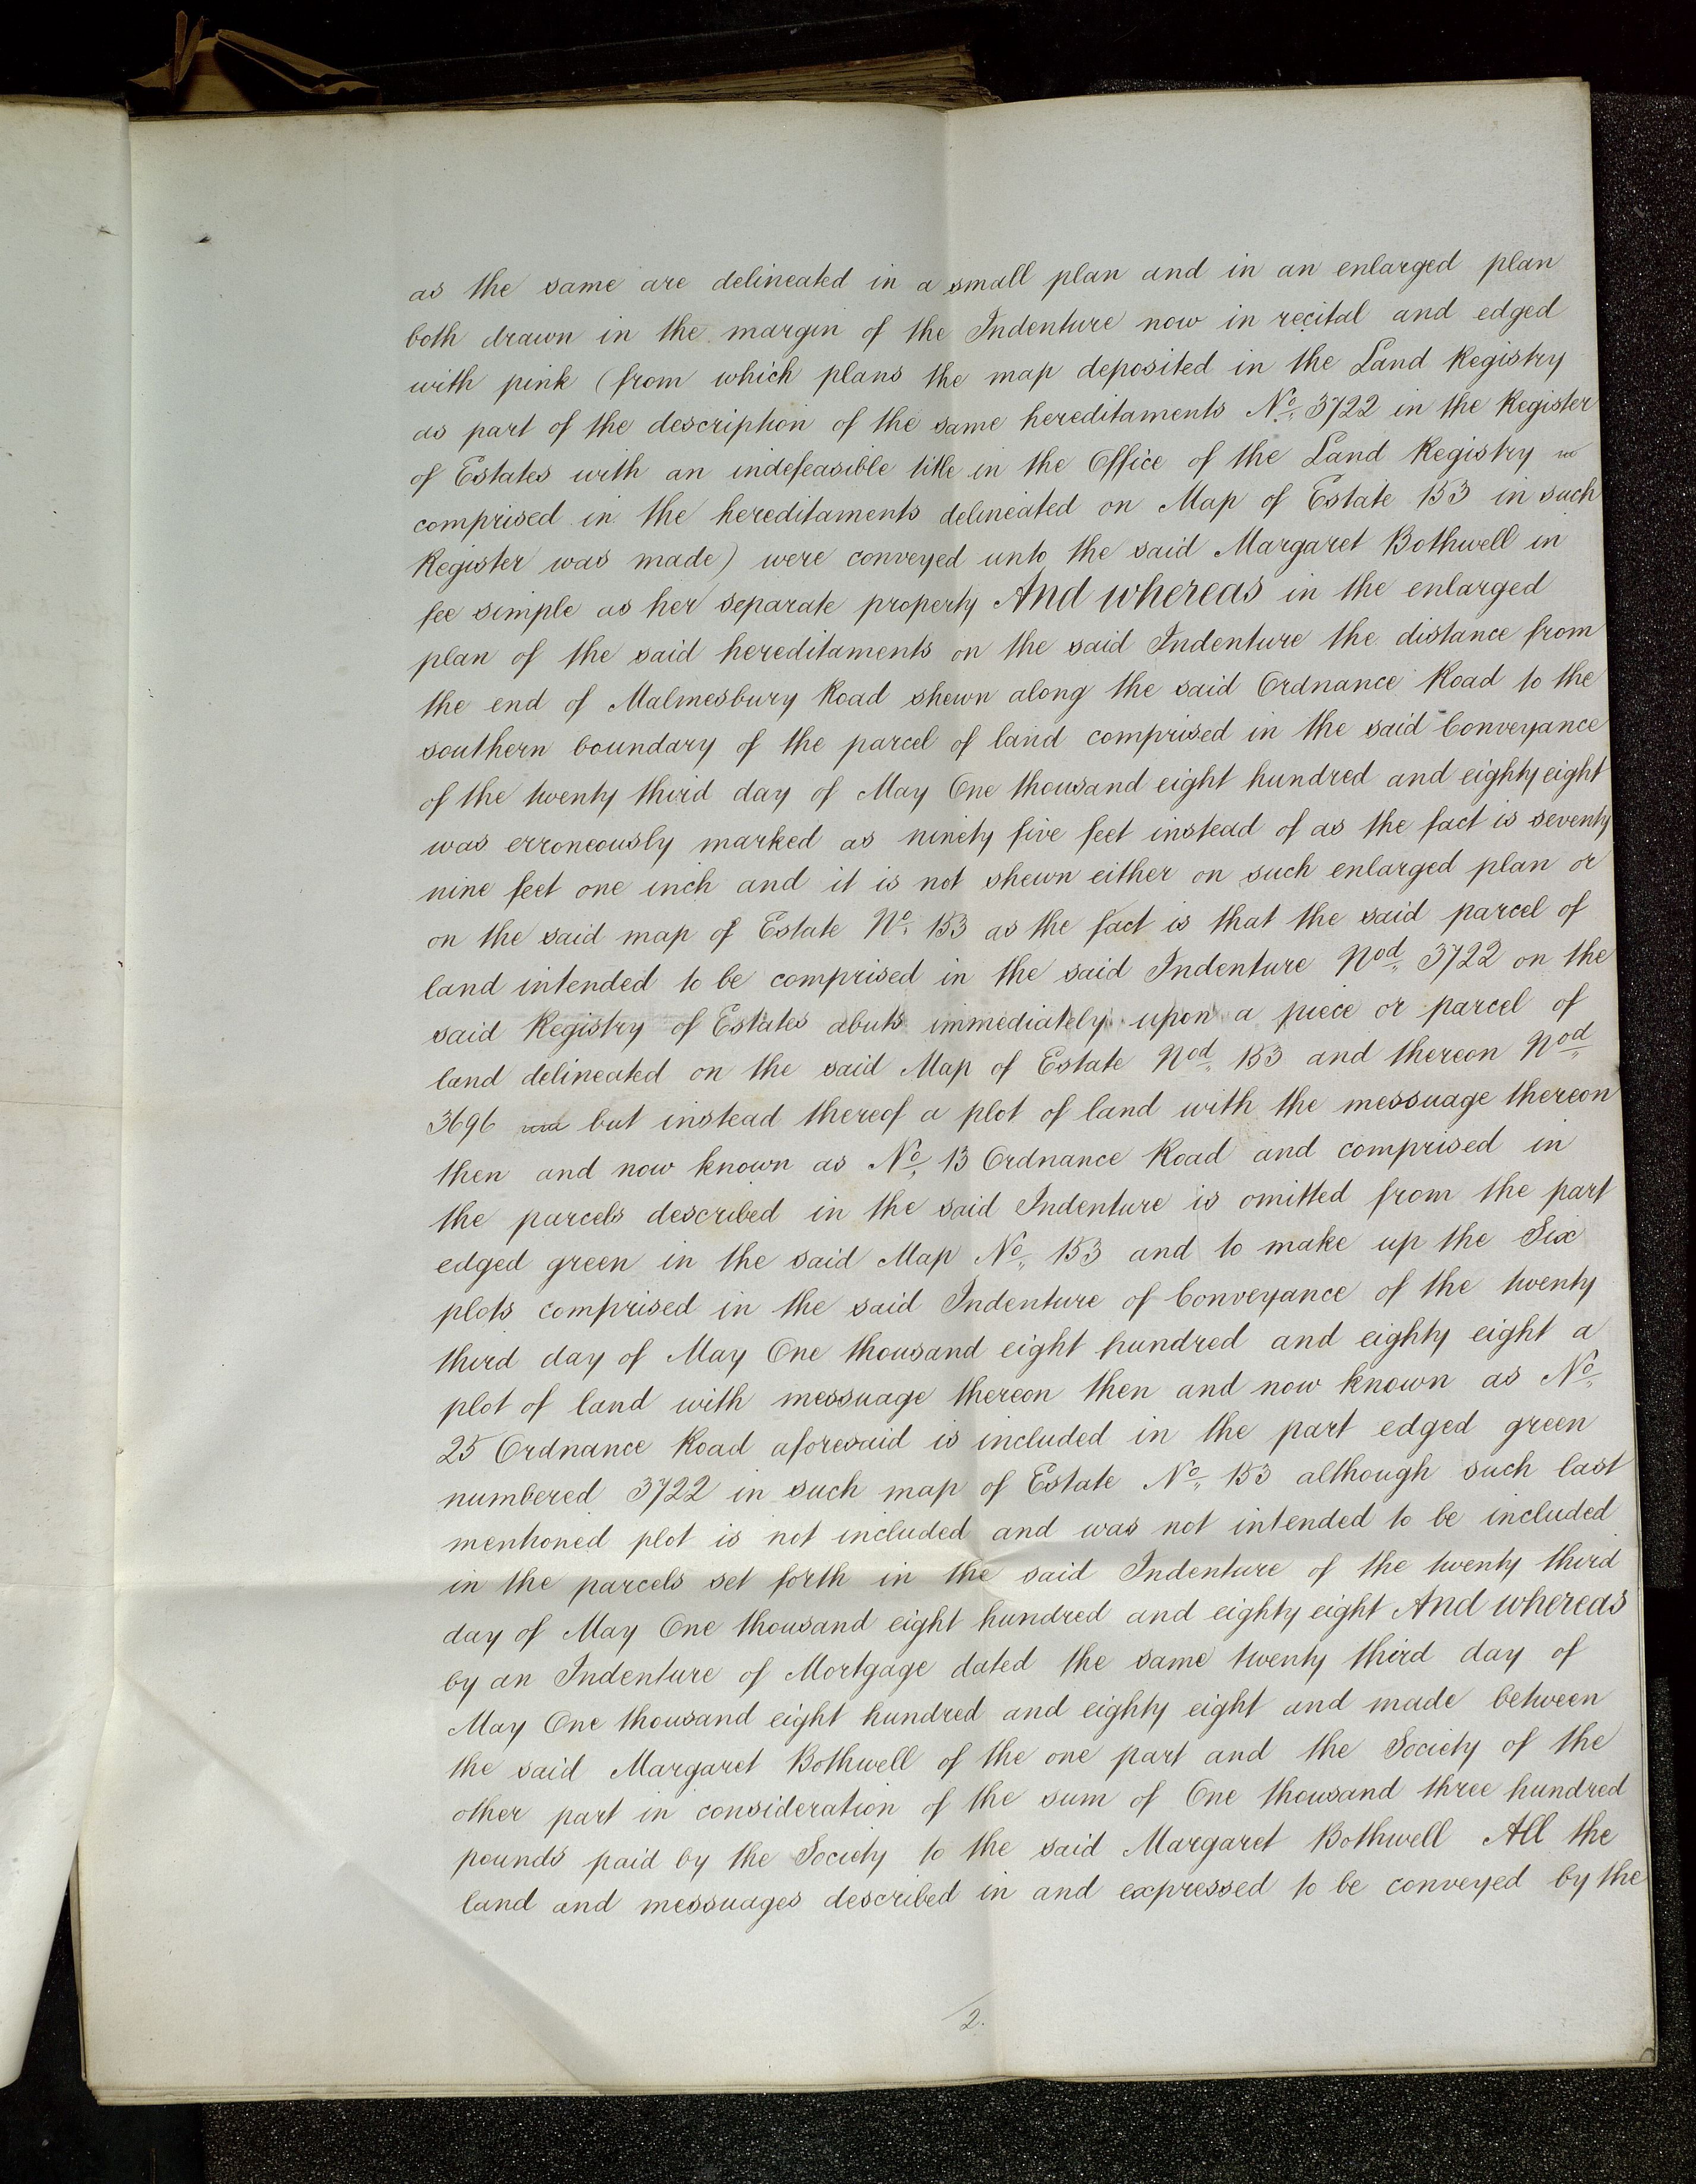 as the same are delineated in a small plan and in an enlarged plan
both drawn in the margin of the Indenture now in recital and edged
with pink (from which plans the map deposited in the Land Registry
as part of the description of the same hereditaments No. 3722 in the Register
of Estates with an indefeasible title in the Office of the Land Registry
comprised in the hereditaments delineated on Map of Estate 153 in such
Register was made) were conveyed unto the said Margaret Bothwell in
fee simple as her separate property And whereas in the enlarged
plan of the said hereditaments on the said Indenture the distance from
the end of Malmesbury Road shewn along the said Ordnance Road to the
southern boundary of the parcel of land comprised in the said Conveyance
of the twenty third day of May One thousand eight hundred and eighty eight
was erroneously marked as ninety five feet instead of as the fact is seventy
nine feet one inch and it is not shewn either on such enlarged plan or
on the said map of Estate No. 153 as the fact is that the said parcel of
land intended to be comprised in the said Indenture Nod. 3722 on the
said Registry of Estates abuts immediately upon a piece or parcel of
land delineated on the said Map of Estate Nod. 153 and thereon Nod.
3696 but instead thereof a plot of land with the messuage thereon
then and now known as No. 13 Ordnance Road and comprised in
the parcels described in the said Indenture is omitted from the part
edged green in the said Map No. 153 and to make up the Six
plots comprised in the said Indenture of Conveyance of the twenty
third day of May One thousand eight hundred and eighty eight a
plot of land with messuage thereon then and now known as No.
25 Ordnance Road aforesaid is included in the part edged green
numbered 3722 in such map of Estate No. 153 although such last
mentioned plot is not included and was not intended to be included
in the parcels set forth in the said Indenture of the twenty third
day of May One thousand eight hundred and eighty eight And whereas
by an Indenture of Mortgage dated the same twenty third day of
May One thousand eight hundred and eighty eight and made between
the said Margaret Bothwell of the one part and the Society of the
other part in consideration of the sum of One thousand three hundred
pounds paid by the Society to the said Margaret Bothwell All the
land and messuages described in and expressed to be conveyed by the
2.